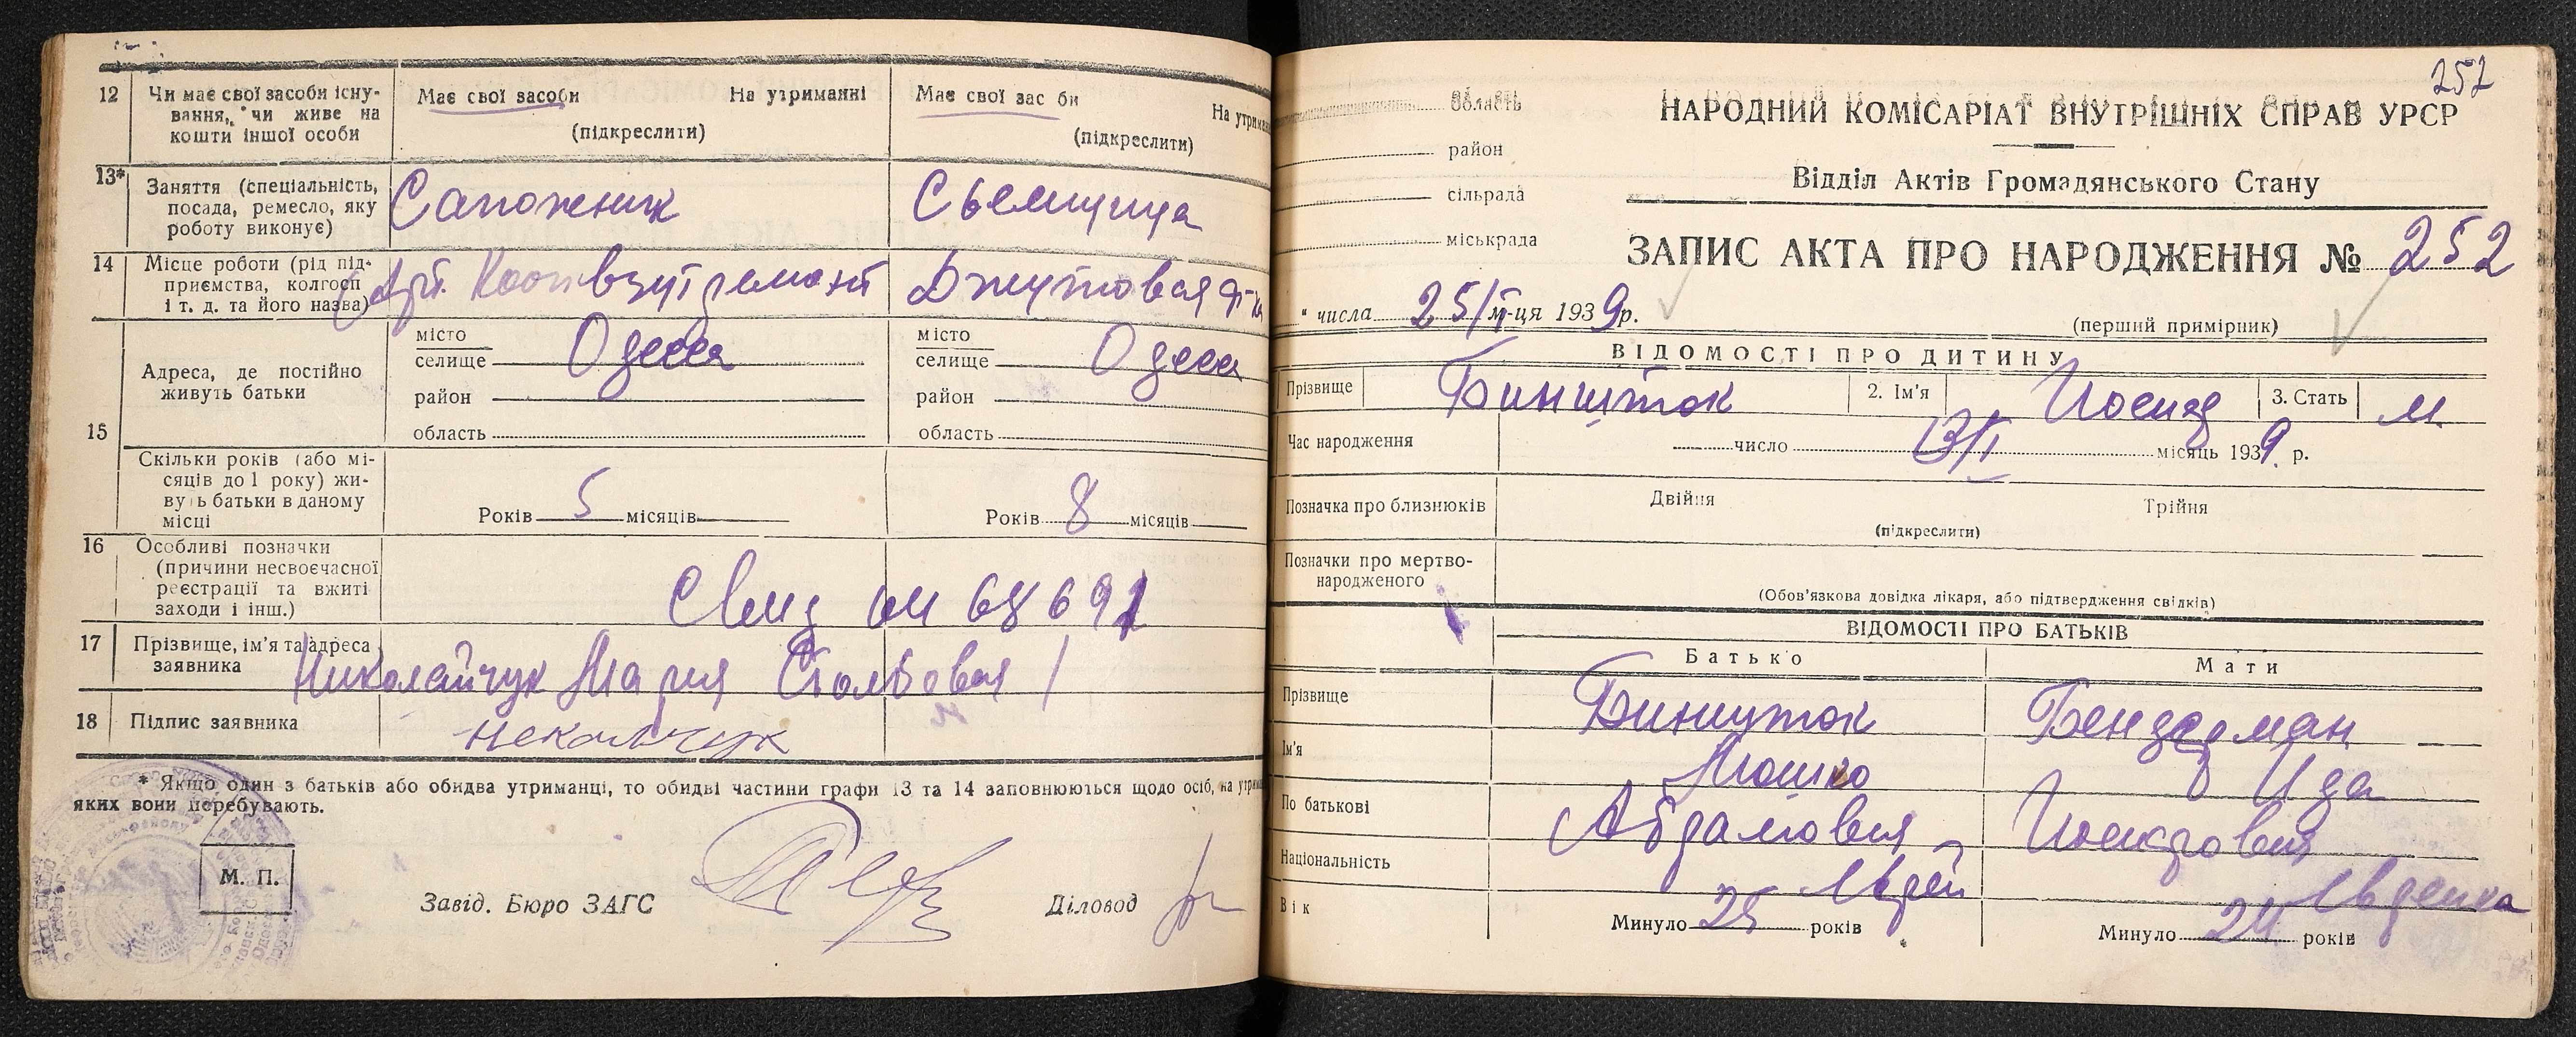 12 Чи має свої засоби існу-
вання, чи живе на
кошти іншої особи
Має свої засоби На утриманні
(підкреслити)
Має свої зас би На утрима
(підкреслити)
13* Заняття (спеціальність,
посада, ремесло, яку
роботу виконує)
Сапожник
Сьемщица
14 Місце роботи (рід під-
приємства, колгосп
і т. д. та його назва)
Арт. взутремонт
Джутовая ф-ка
15 Адреса, де постійно
живуть батьки
місто
селище Одесса
район
область
місто
селище Одесса
район
область
Скільки років (або мі-
сяців до 1 року) жи-
вуть батьки в даному
місці
Років 5 місяців
Років 8 місяців
16 Особливі позначки
(причини несвоєчасної
реєстрації та вжиті
заходи і інш.)
68691
17 Прізвище, ім'я та адреса
заявника
Николайчук Мария Столбовая 1
18 Підпис заявника
* Якщо один з батьків або обидва утриманці, то обидві частини графи 13 та 14 заповнюються щодо осіб, на утрим
яких вони перебувають.
М. П.
Завід. Бюро ЗАГС Діловод
252
область
район
сільрада
міськрада
НАРОДНИЙ КОМІСАРІАТ ВНУТРІШНІХ СПРАВ УРСР
Відділ Актів Громадянського Стану
ЗАПИС АКТА ПРО НАРОДЖЕННЯ № 252
" числа 25/І м-ця 1939 р.
(перший примірник)
ВІДОМОСТІ ПРО ДИТИНУ
Прізвище Биншток 2. Ім'я Иосиф 3. Стать м.
Час народження число 13/І місяць 1939 р.
Позначка про близнюків Двійня Трійня
(підкреслити)
Позначки про мертво-
народженого
(Обов'язкова довідка лікаря, або підтвердження свідків)
ВІДОМОСТІ ПРО БАТЬКІВ
Батько Мати
Прізвище Биншток Бендерман
Ім'я Мошко Ида
По батькові Абрамович Иосифовна
Національність Еврей Еврейка
Вік Минуло 25 років Минуло 24 років